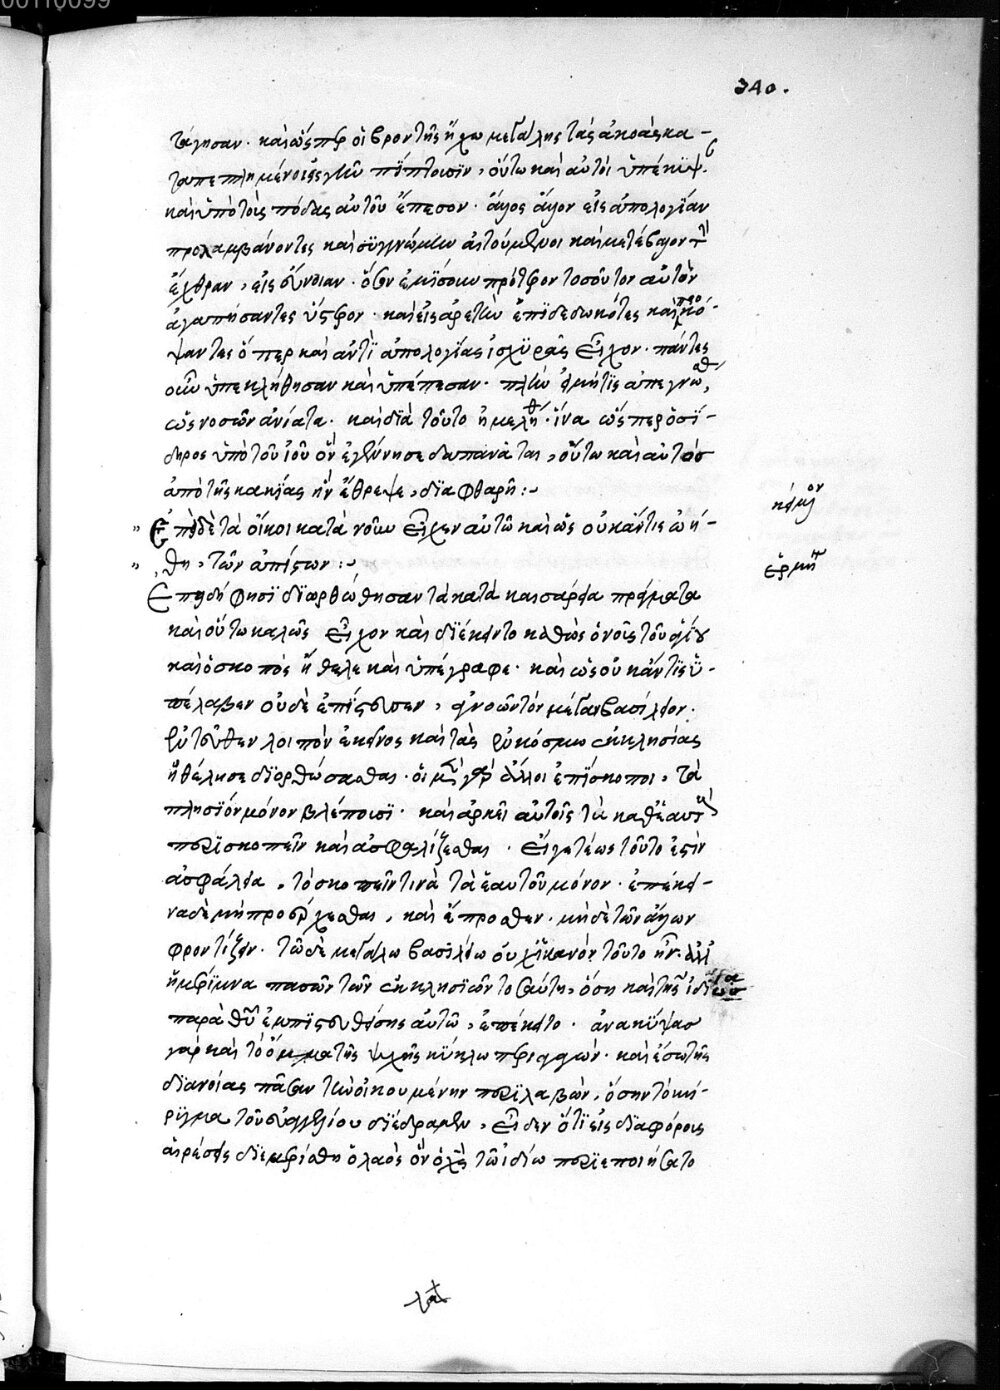 00110099
340.
τάγησαν. καὶ ὥσπερ οἱ βροντῆς ἤχω μεγάλης τὰς ἀκοὰς κα-
ταπεπληγμένοι ἐς γῆν πίπτουσιν, οὕτω καὶ αὐτοὶ ὑπέκυψ.
καὶ ὑπὸ τοὺς πόδας αὐτοῦ ἔπεσον. ἄλλος ἄλλον εἰς ἀπολογίαν
προλαμβάνοντες καὶ συγγνώμην αἰτούμενοι καὶ μετέβαλον τὴν
ἔχθραν, εἰς εὔνοιαν. ὅσον ἐμίσουν πρότερον τοσοῦτον αὐτὸν
ἀγαπήσαντες ὕστερον. καὶ εἰς ἀρετὴν ἐπιδεδωκότες καὶ προκό-
ψαντες ὅπερ καὶ ἀντὶ ἀπολογίας ἰσχυρᾶς εἶχον. πάντες
οὖν ὑπεκλήθησαν καὶ ὑπέπεσαν. πλὴν εἰ μή τις ἀπεγνώσθ,
ὡς νοσῶν ἀνίατα. καὶ διὰ τοῦτο ἠμελήθ. ἵνα ὥσπερ ὁ σί-
δηρος ὑπὸ τοῦ ἰοῦ ὃν ἐγέννησε δαπανᾶται, οὕτω καὶ αὐτὸς
ἀπὸ τῆς κακίας ἣν ἔθρεψε, διαφθαρῇ:~
κείμενον
" Ἐπεὶ δὲ τὰ οἴκοι κατὰ νοῦν εἶχεν αὐτῷ καὶ ὡς οὐκ ἄν τις ᾠή-
" θη, τῶν ἀπίστων:~
ἑρμη
Ἐπειδὴ φησὶ διωρθώθησαν τὰ κατὰ καισάρεια πράγματα
καὶ οὕτω καλῶς εἶχον καὶ διέκειντο καθὼς ὁ νοῦς τοῦ ἁγίου
καὶ ὁ σκοπὸς ἤθελε καὶ ὑπέγραφε. καὶ ὡς οὐκ ἄν τις ὑ-
πέλαβεν οὐδὲ ἐπίστευσεν, ἀγνοῶν τὸν μέγαν βασίλειον.
ἐντεῦθεν λοιπὸν ἐκεῖνος καὶ τὰς ἐν κόσμω ἐκκλησίας
ἠθέλησε διορθώσασθαι. οἱ μὲν γὰρ ἄλλοι ἐπίσκοποι, τὰ
πλησίον μόνον βλέπουσι. καὶ ἀρκεῖ αὐτοῖς τὰ καθ' ἑαυτοὺς
περισκοπεῖν καὶ ἀσφαλίζεσθαι. εἴγε τέως τοῦτο ἐστὶν
ἀσφάλεια, τὸ σκοπεῖν τινὰ τὰ ἑαυτοῦ μόνον. ἐπέκει-
να δὲ μὴ προσέρχεσθαι, καὶ ἔπροσθεν. μὴ δὲ τῶν ἄλλων
φροντίζειν. τῶ δὲ μεγάλω βασιλείω οὐχ ἱκανὸν τοῦτο ἦν. ἀλλ'
ἡ μέριμνα πασῶν τῶν ἐκκλησιῶν τοσαύτη, ὅση καὶ τῆς ἰδίας
παρὰ θεοῦ ἐμπιστευθείσης αὐτῶ, ἐπέκειτο. ἀνακύψας
γὰρ καὶ τὸ ὄμμα τῆς ψυχῆς κύκλω περιαγαγών. καὶ ἔσω τῆς
διανοίας πᾶσαν τὴν οἰκουμένην περιλαβών, ὅσην τὸ κή-
ρυγμα τοῦ εὐαγγελίου διέδραμεν, εἶδεν ὅτι εἰς διαφόρους
αἱρέσεις διεμερίσθη ὁ λαὸς ὃν ὁ χριστὸς τῶ ἰδίω περιεποιήσατο